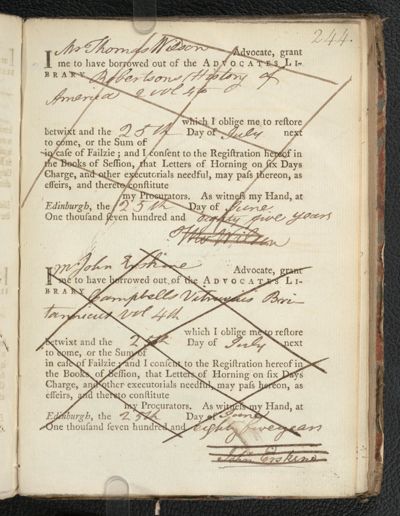 244.
I Mr Thomas Wilson Advocate, grant
me to have borrowed out of the ADVOCATES LI-
BRARY Robertsons History of
America 2 vol 4to
which I oblige me to reſtore
betwixt and the 25th Day of July next
to come, or the Sum of
in caſe of Failzie; and I conſent to the Regiſtration hereof in
the Books of Seſſion, that Letters of Horning on ſix Days
Charge, and other executorials needful, may paſs thereon, as
effeirs, and thereto conſtitute
my Procurators. As witneſs my Hand, at
Edinburgh, the 25th Day of June
One thouſand ſeven hundred and eighty five years
Tho Wilson
I Mr John Erskine Advocate, grant
me to have borrowed out of the ADVOCATES LI-
BRARY Campbells Vitruvius Bri-
tannicus vol 4th
which I oblige me to reſtore
betwixt and the 25th Day of July next
to come, or the Sum of
in caſe of Failzie; and I conſent to the Regiſtration hereof in
the Books of Seſſion, that Letters of Horning on ſix Days
Charge, and other executorials needful, may paſs hereon, as
effeirs, and thereto conſtitute
my Procurators. As witneſs my Hand, at
Edinburgh, the 25th Day of June
One thouſand ſeven hundred and eighty five years
John Erskine